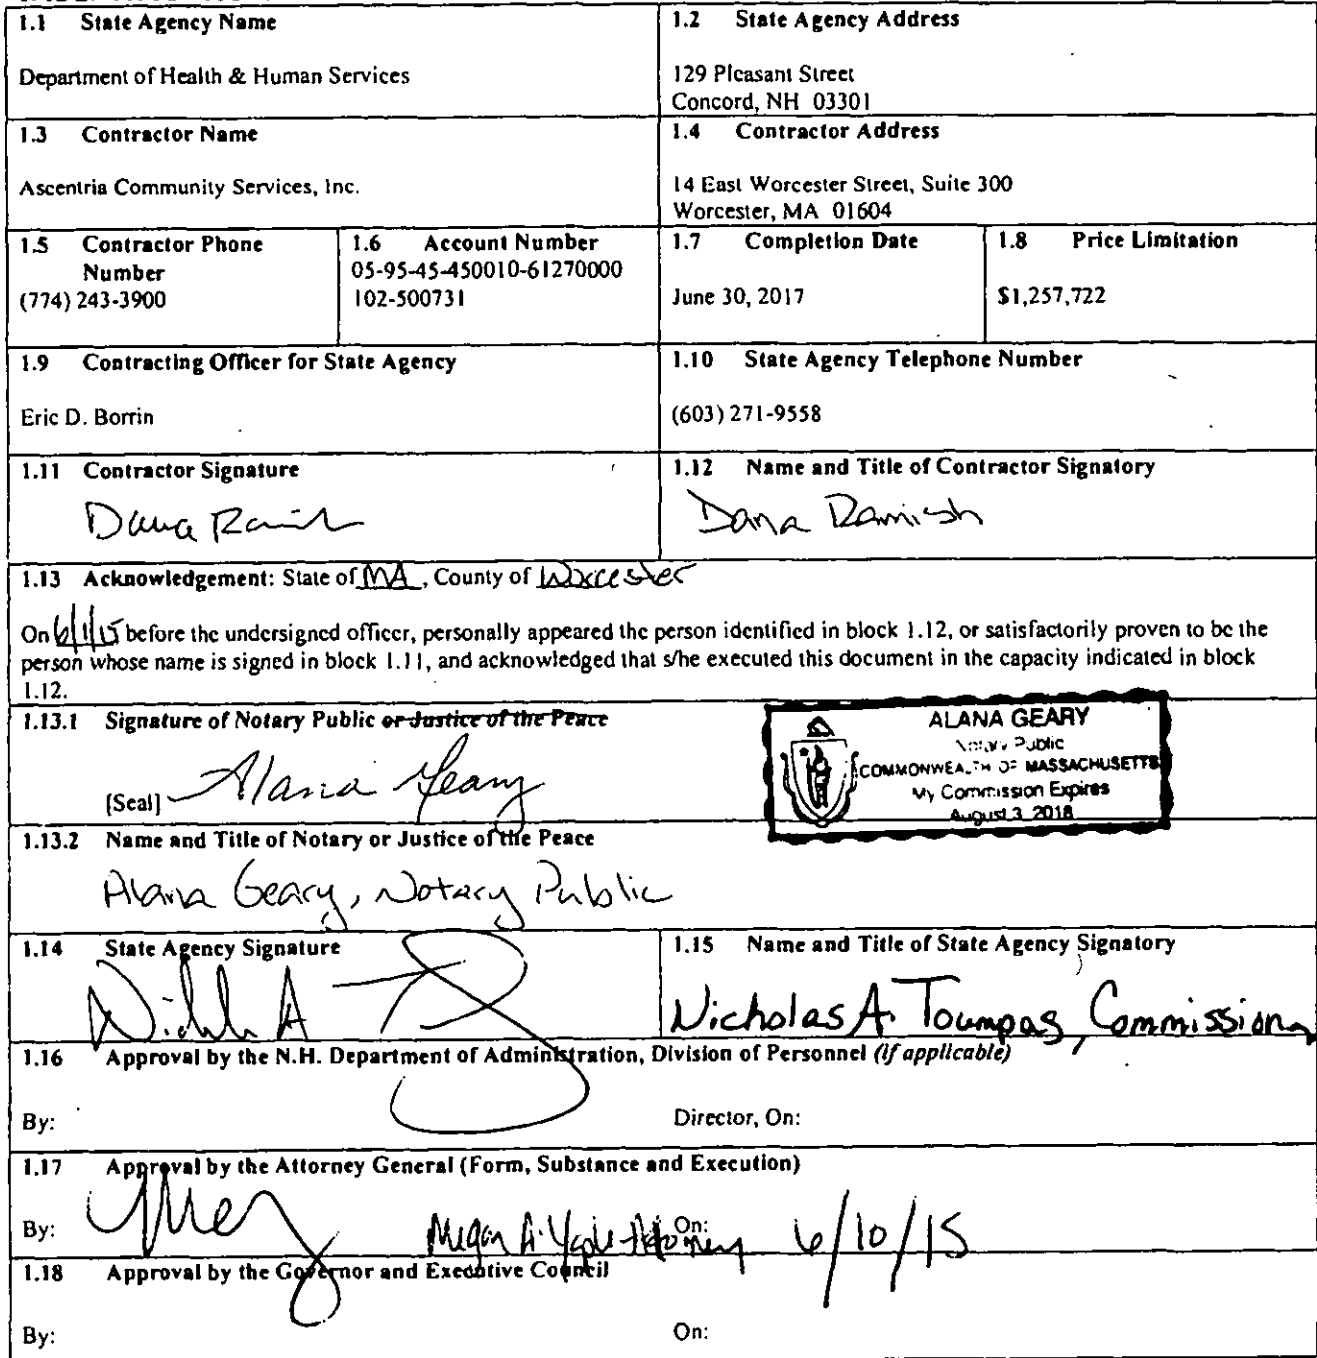 1.1 State Agency Name
Department of Health & Human Services
1.2 State Agency Address
129 Pleasant Street
Concord, NH 03301
1.3 Contractor Name
Ascentria Community Services, Inc.
1.4 Contractor Address
14 East Worcester Street, Suite 300
Worcester, MA 01604
1.5 Contractor Phone
Number
(774) 243-3900
1.6 Account Number
05-95-45-450010-61270000
102-500731
1.7 Completion Date
June 30, 2017
1.8 Price Limitation
$1,257,722
1.9 Contracting Officer for State Agency
Eric D. Borrin
1.10 State Agency Telephone Number
(603) 271-9558
1.11 Contractor Signature
Dana Ramish
1.12 Name and Title of Contractor Signatory
Dana Ramish
1.13 Acknowledgement: State of MA, County of Worcester
On 6/1/15 before the undersigned officer, personally appeared the person identified in block 1.12, or satisfactorily proven to be the
person whose name is signed in block 1.11, and acknowledged that s/he executed this document in the capacity indicated in block
1.12.
1.13.1 Signature of Notary Public or Justice of the Peace
[Seal] Alana Geary
ALANA GEARY
Notary Public
COMMONWEALTH OF MASSACHUSETTS
My Commission Expires
August 3, 2018
1.13.2 Name and Title of Notary or Justice of the Peace
Alana Geary, Notary Public
1.14 State Agency Signature
1.15 Name and Title of State Agency Signatory
Nicholas A. Toumpas, Commissioner
1.16 Approval by the N.H. Department of Administration, Division of Personnel (if applicable)
By: Director, On:
1.17 Approval by the Attorney General (Form, Substance and Execution)
By: Megan A. Yaple - Attorney On: 6/10/15
1.18 Approval by the Governor and Executive Council
By: On: